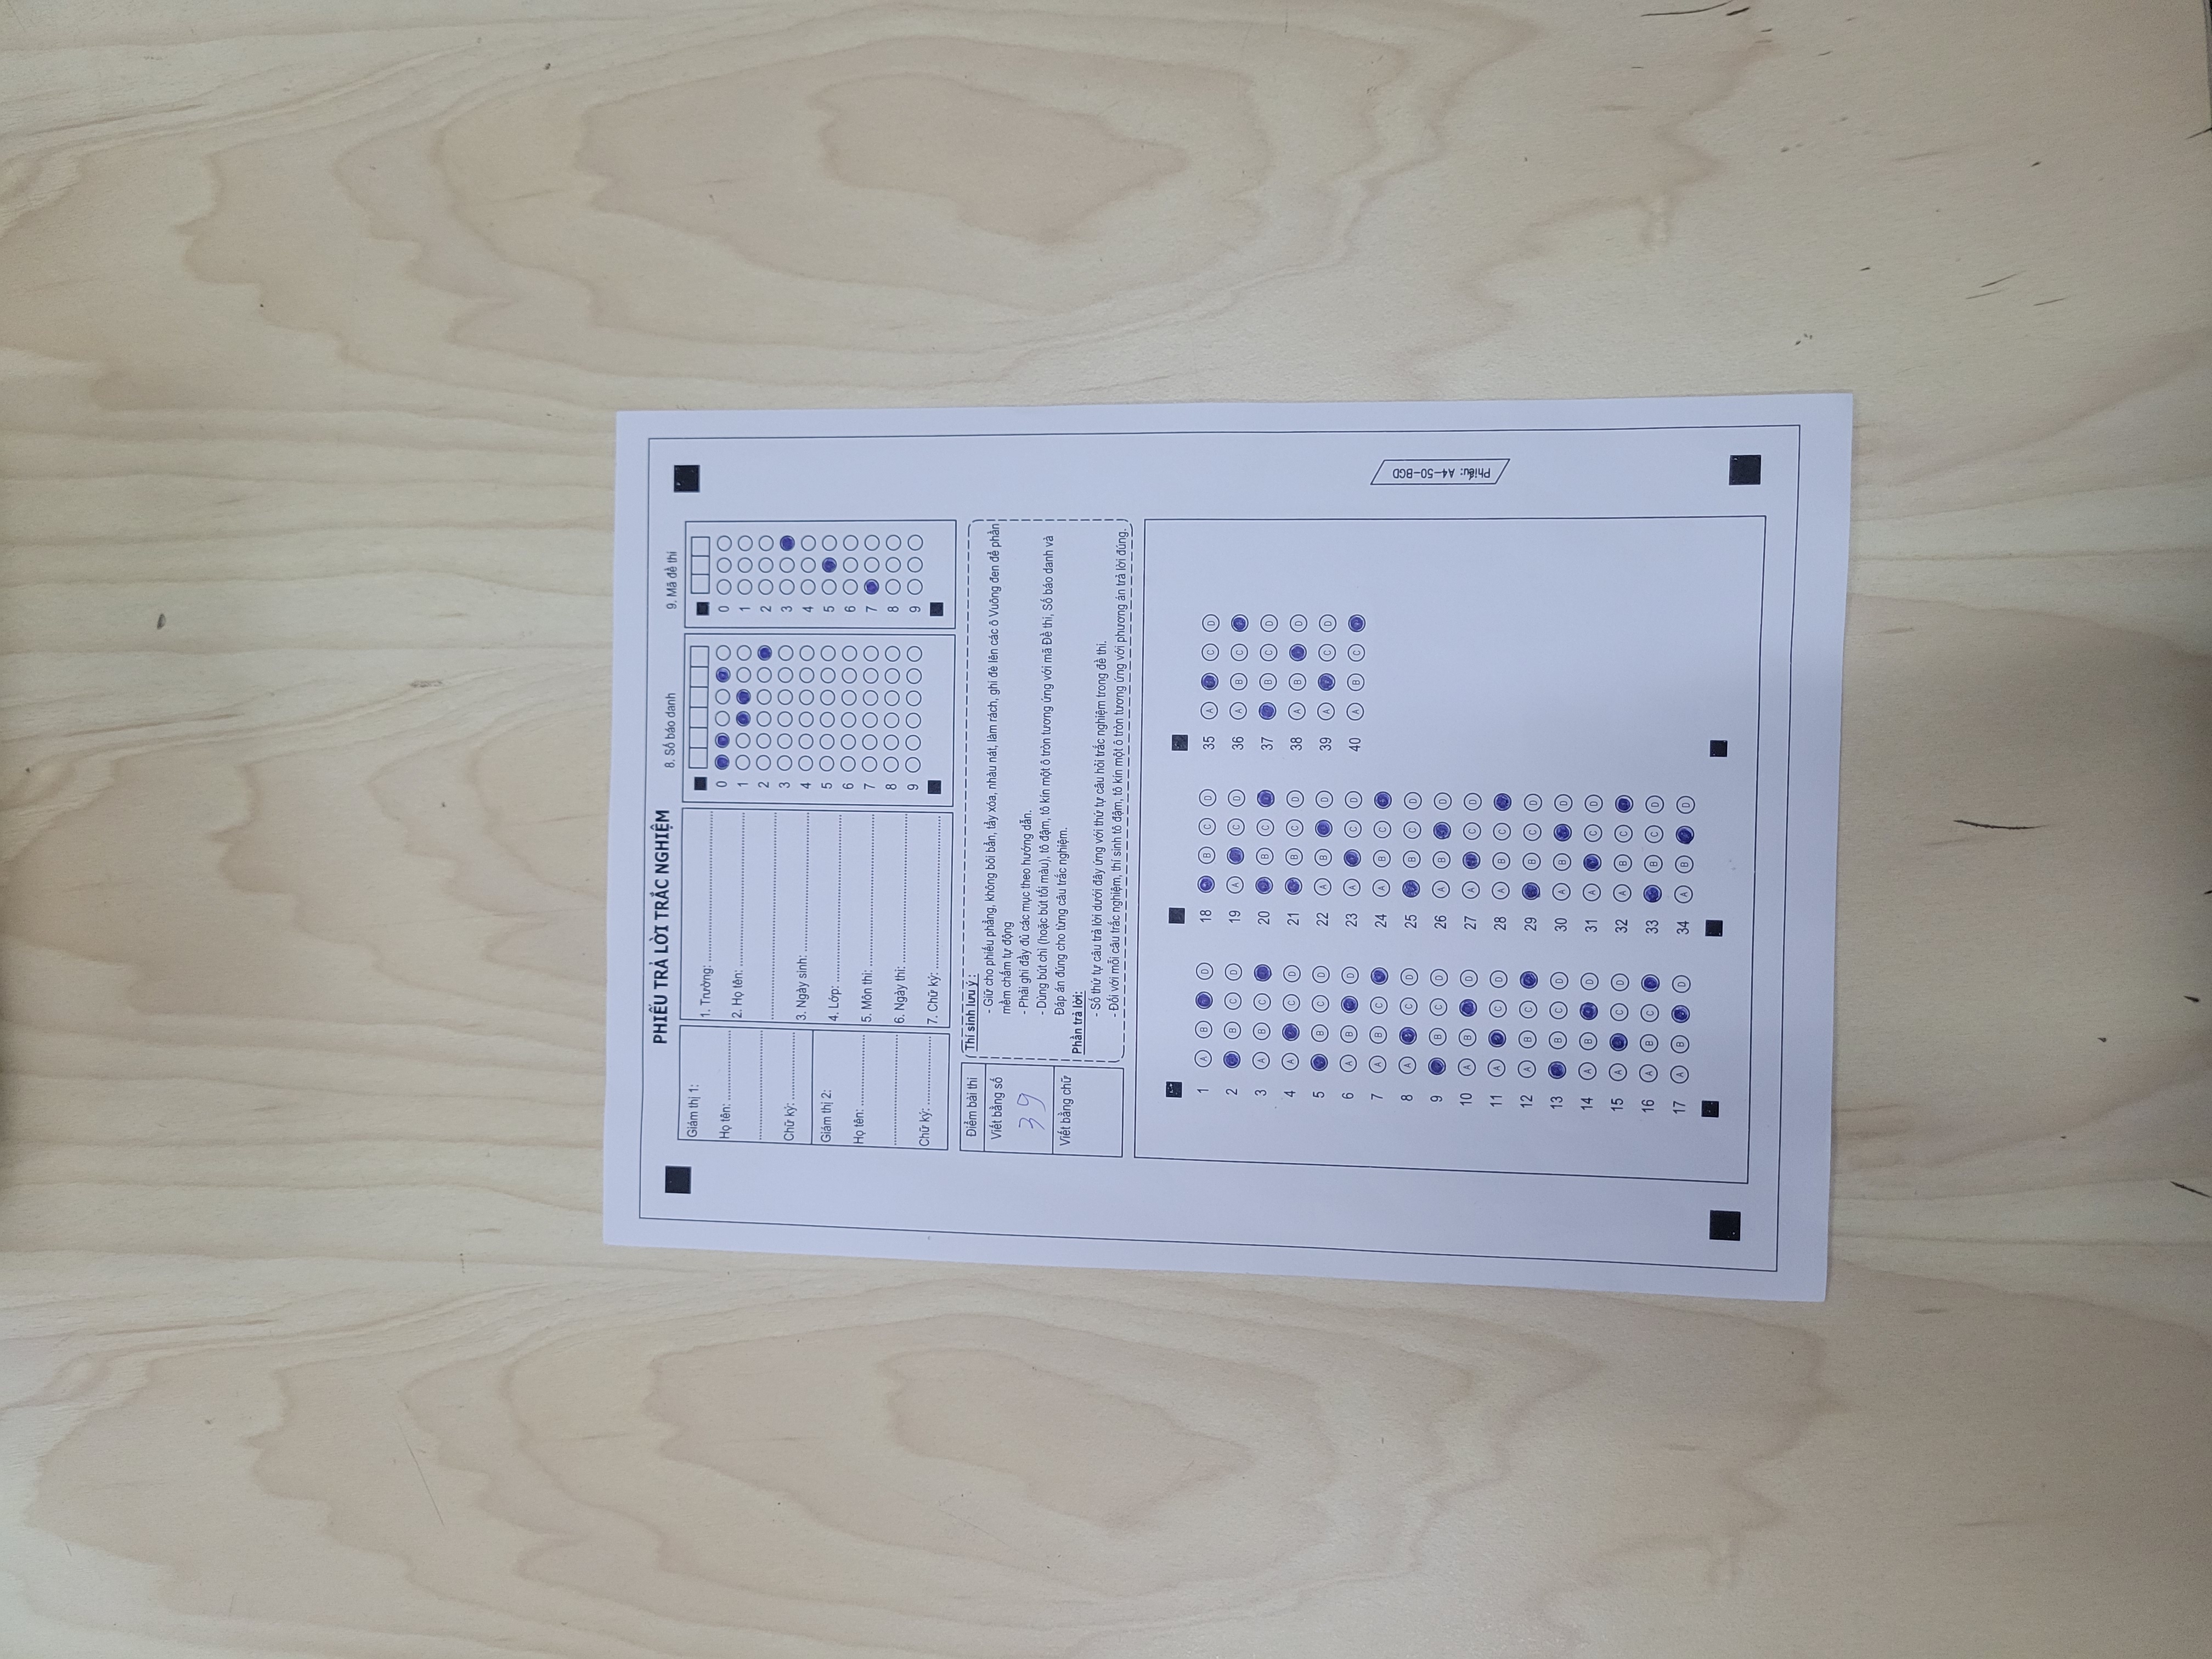 PHIẾU TRẢ LỜI TRẮC NGHIỆM
Giám thị 1:
Họ tên:
Chữ ký:
Giám thị 2:
Họ tên:
Chữ ký:
1. Trường:
2. Họ tên:
3. Ngày sinh:
4. Lớp:
5. Môn thi:
6. Ngày thi:
7. Chữ ký:
8. Số báo danh
0
1
2
3
4
5
6
7
8
9
9. Mã đề thi
0
1
2
3
4
5
6
7
8
9
Điểm bài thi
Viết bằng số
39
Viết bằng chữ
Thí sinh lưu ý :
- Giữ cho phiếu phẳng, không bôi bẩn, tẩy xóa, nhàu nát, làm rách, ghi đè lên các ô Vuông đen để phần
mềm chấm tự động
- Phải ghi đầy đủ các mục theo hướng dẫn.
- Dùng bút chì (hoặc bút tối màu), tô đậm, tô kín một ô tròn tương ứng với mã Đề thi, Số báo danh và
Đáp án đúng cho từng câu trắc nghiệm.
Phần trả lời:
- Số thứ tự câu trả lời dưới đây ứng với thứ tự câu hỏi trắc nghiệm trong đề thi.
- Đối với mỗi câu trắc nghiệm, thí sinh tô đậm, tô kín một ô tròn tương ứng với phương án trả lời đúng.
1 A B D
2 B C D
3 A B C
4 A C D
5 B C D
6 A B D
7 A B C
8 A C D
9 B C D
10 A B D
11 A C D
12 A B C
13 B C D
14 A B D
15 A C D
16 A B C
17 A B D
18 B C D
19 A C D
20 B C
21 B C D
22 A B D
23 A C D
24 A B C
25 B C D
26 A B D
27 A C D
28 A B C
29 B C D
30 A B D
31 A C D
32 A B C
33 B C D
34 A B D
35 A C D
36 A B C
37 B C D
38 A B D
39 A C D
40 A B C
Phiếu: A4-50-BGD